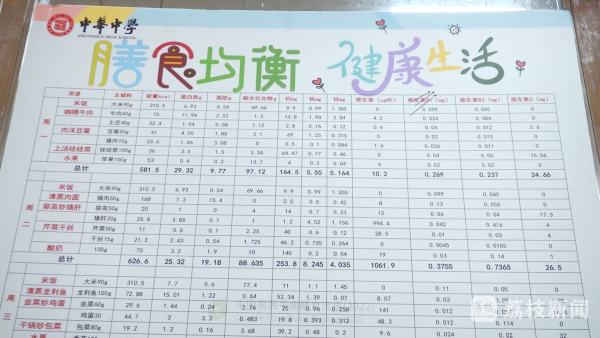 中華中學
膳食均衡 健康生活
菜谱 主辅料 能量kcal 蛋白质g 脂肪g 碳水化合物g 钙mg 铁mg 锌mg 维生素A（μgRE） 维生素B1（mg） 维生素B2（mg） 维生素C（mg）
周一
米饭 大米90g 310.5 6.93 0.54 69.66 9.9 0.99 1.305 0.099 0.045
咖喱牛肉 牛肉60g 75 11.94 2.52 1.2 13.8 1.98 2.84 4.2 0.024 0.084
土豆40g 32.4 1.04 0.08 7.12 2.8 0.16 0.12 0.4 0.04 0.012 5.6
肉沫豆腐 豆腐50g 41 4.05 1.85 2.1 69 1.25 0.315
猪肉15g 33.6 1.46 3.08 0 0.5 0.1 0.084
上汤娃娃菜
水果 苹果100g 53 0.4 0.2 13.7 4 0.3 0.04 4
总计 581.5 29.32 9.77 97.12 164.5 5.55 5.164 10.2 0.269 0.237 24.66
周二
米饭 大米90g 310.5 6.93 0.54 69.66 9.9 0.99 1.305 0.099 0.045
清蒸肉圆 猪肉50g 168 7.3 15.4 0 2.5 0.5 0.42 8 0.13 0.055
蒜苗炒猪肝 蒜苗20g 20 1 0 4 14 0.7 0.23 12 0.06 0.04 17.5
猪肝20g 25.8 3.86 0.7 1 1.2 4.52 1.156 994.4 0.042 0.416 4
芹菜干丝 芹菜50g 11 0.6 0.1 2.25 40 0.6 0.12 28.5 0.01 0.03 4
干丝15g 21.3 2.43 0.54 1.725 46.2 0.735 0.264 0 0.0045 0.0105
酸奶 100g 70 3.2 1.9 10 140 0.2 0.54 19 0.03 0.14 1
总计 626.6 25.32 19.18 88.635 253.8 8.245 4.035 1061.9 0.3755 0.7365 26.5
周三
米饭 大米90g 310.5 7.7 0.6 77.4 11 1.1 1.45 0.11 0.05
清蒸龙利鱼 龙利鱼100g 72.88 15.01 1.22 0.64 52.34 1.39 1.07 8.57 0.03
韭菜炒鸡蛋 韭菜60g 29.6 1.44 0.24 2.76 25 0.96 0.258 141 0.012
鸡蛋30 44.7 3 3.3 0.483 19.8 0.393 0.312 48.3 0.0132
干锅炒包菜 包菜80g 19.2 1.2 0.16 3.68 39.2 0.48 0.2 9.6 0.024 0.02 32
水果
荔枝新闻